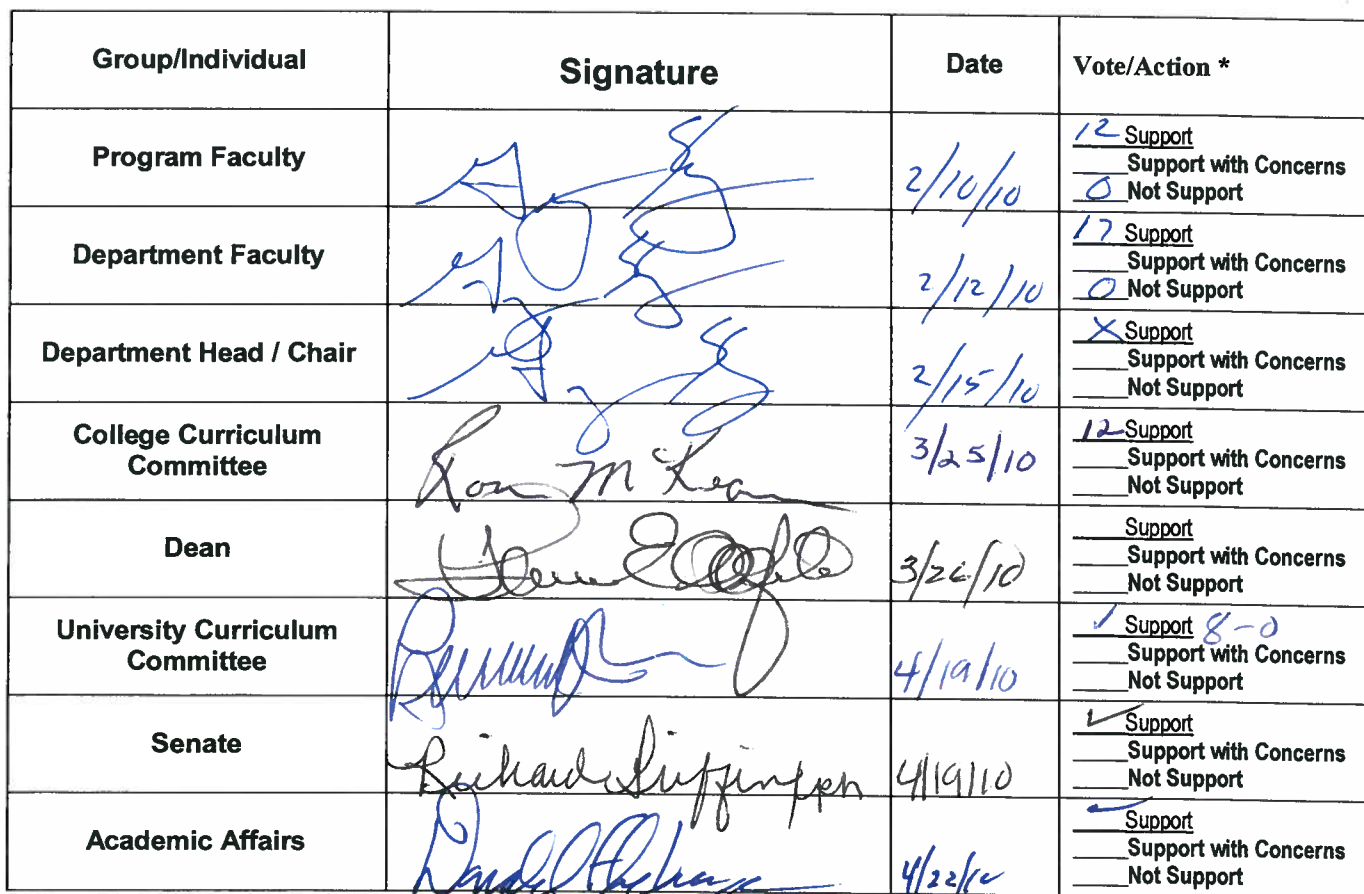 Group/Individual Signature Date Vote/Action *
Program Faculty 2/10/10
12 Support
____Support with Concerns
0 Not Support
Department Faculty 2/12/10
17 Support
____Support with Concerns
0 Not Support
Department Head / Chair 2/15/10
X Support
____Support with Concerns
____Not Support
College Curriculum
Committee
Ron McKean 3/25/10
12 Support
____Support with Concerns
____Not Support
Dean 3/26/10
____Support
____Support with Concerns
____Not Support
University Curriculum
Committee
4/19/10
✓ Support 8-0
____Support with Concerns
____Not Support
Senate Richard 4/19/10
✓ Support
____Support with Concerns
____Not Support
Academic Affairs 4/22/10
✓ Support
____Support with Concerns
____Not Support